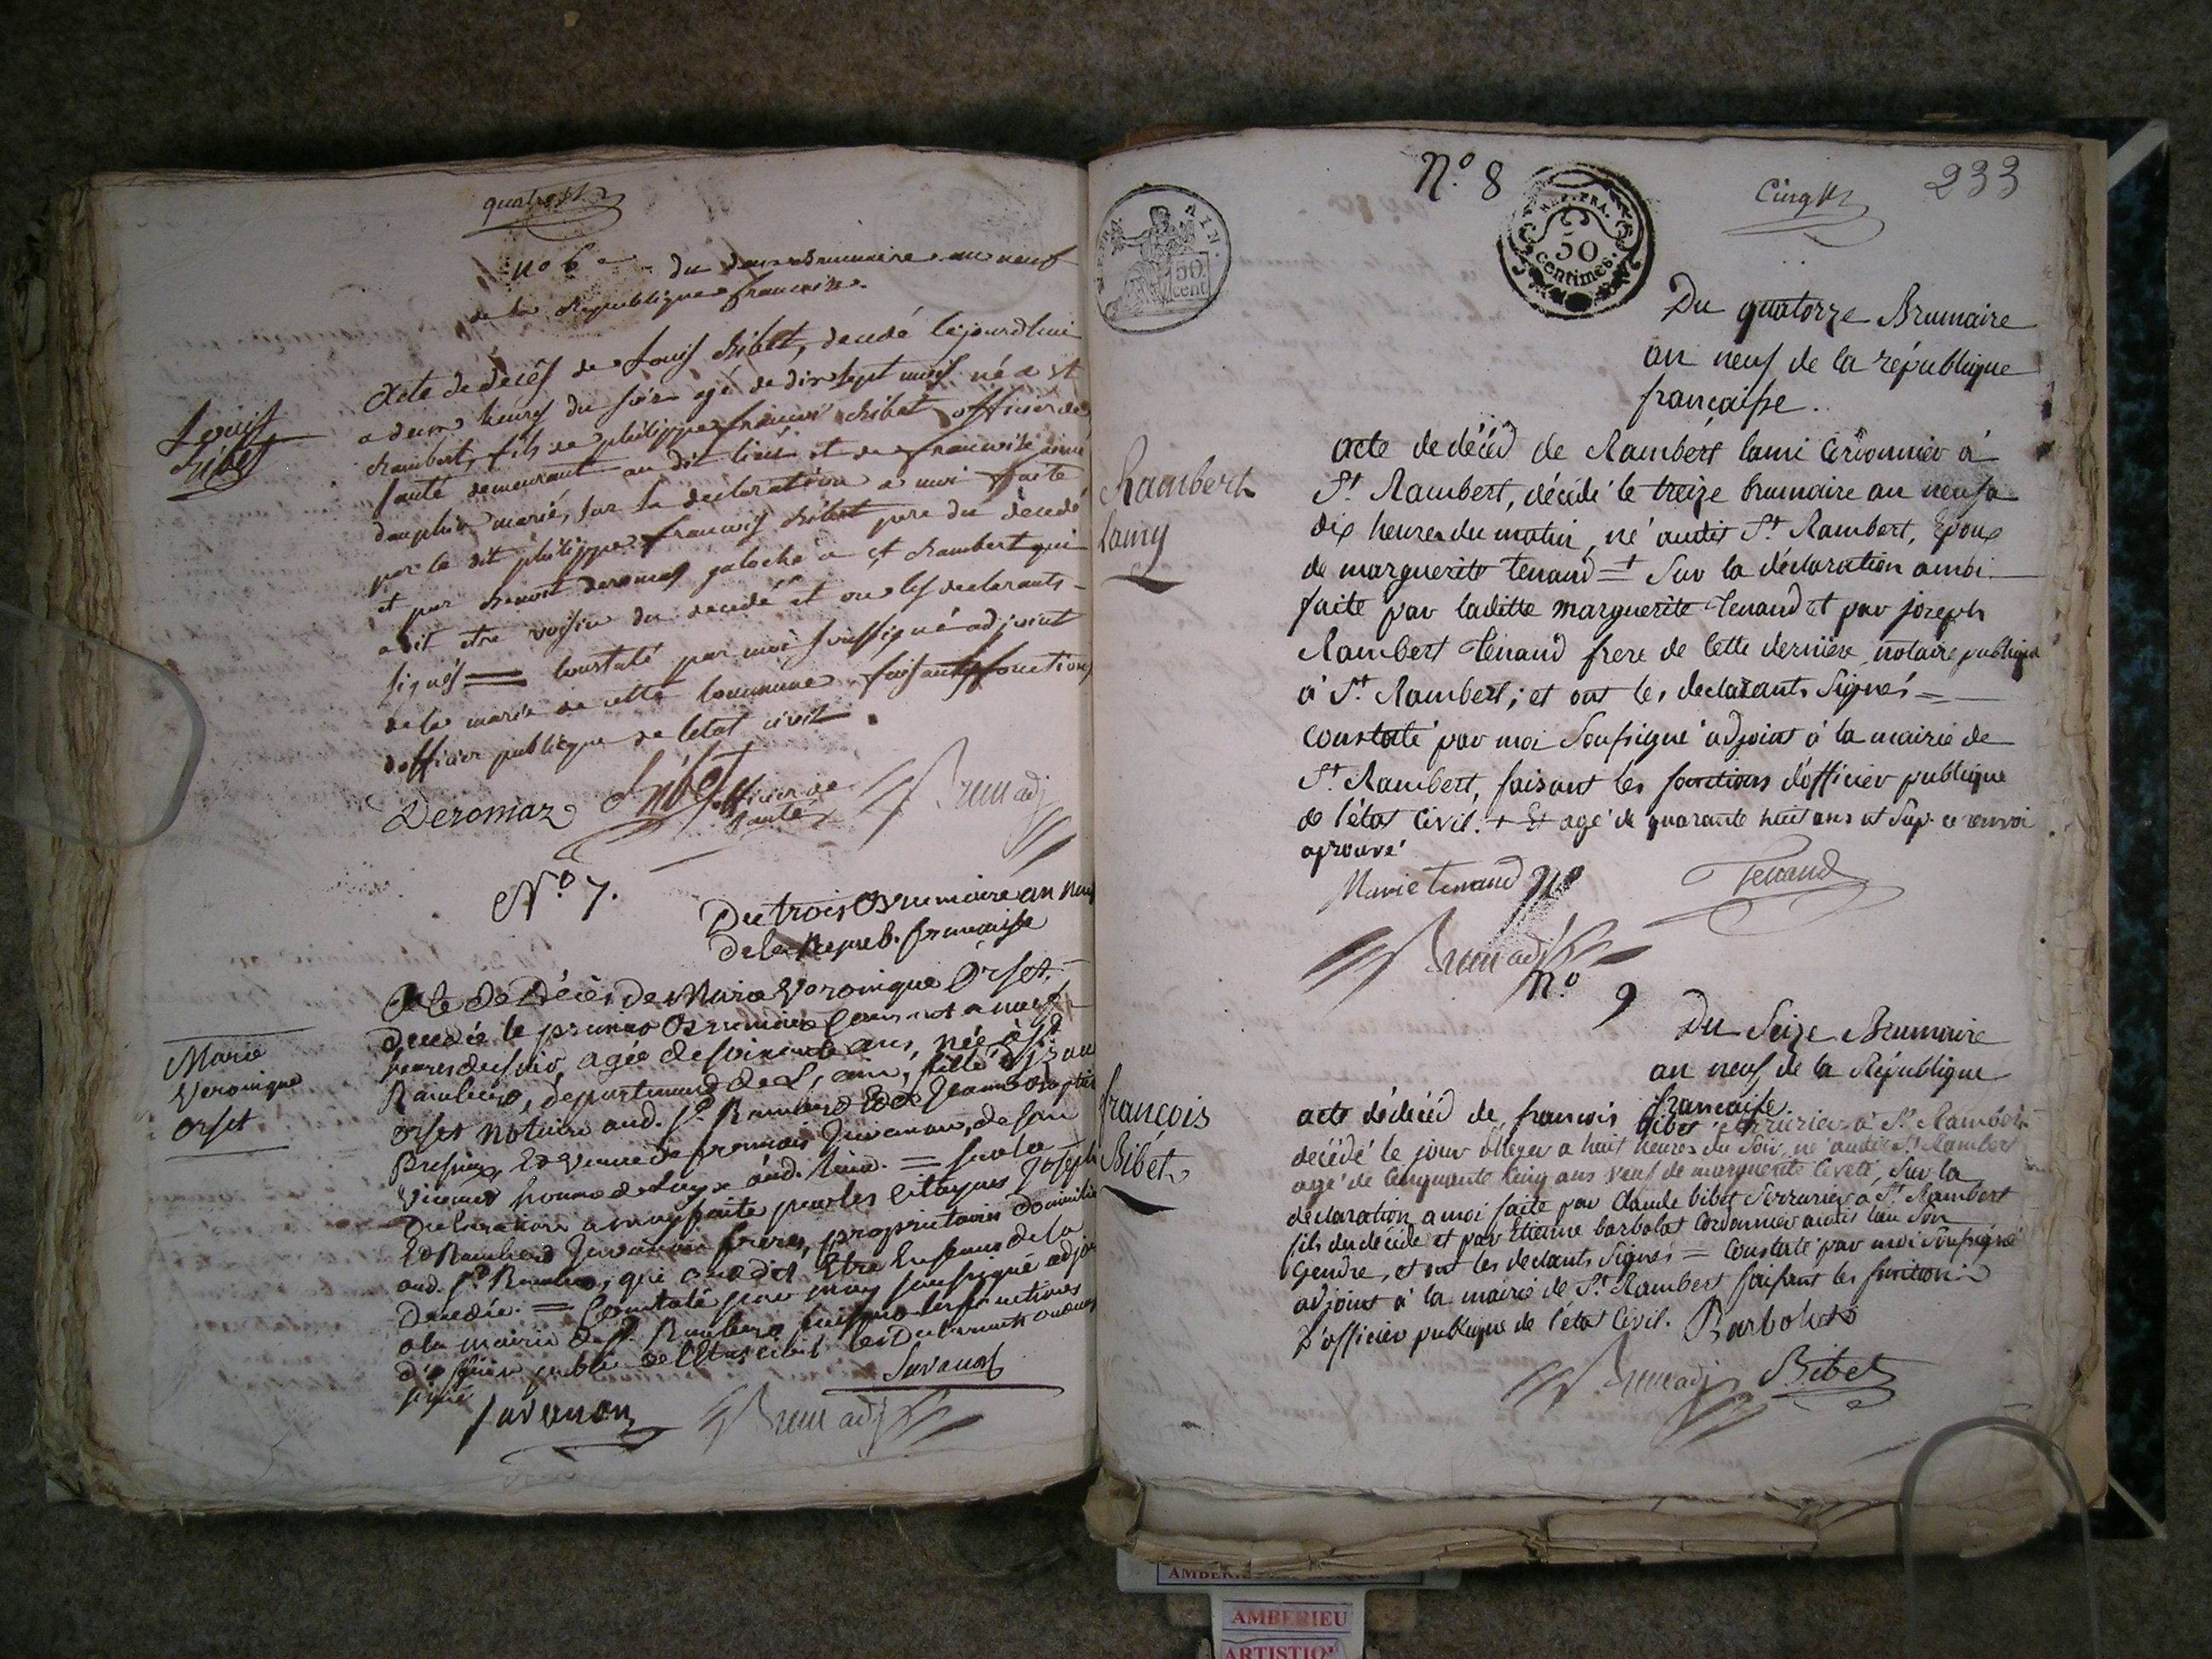 quatre
no 6 du deux Brumaire an neuf
de la Republique francaise.
Louis
Bibet
Acte de decès de Louis Bibet, decedé cejourdhui
a deux heures du soir agé de dix sept mois né a st
Rambert, fils de philippe francois Bibet officier de
santé demeurant au dit lieu et de francoise
dauphin mariés, sur la declaration a moi faite
par le dit philippe francois Bibet pere du decedé
et par Benoit deromas galoché a st Rambert qui
a dit etre voisin du decedé et ont les declarants
signés = Constaté par moi soussigné adjoint
de la mairie de cette Commune faisant fonctions
dofficier publicque de letat civil.
Deromaz Bibet officier de
santé Brun adj
No 7.
Du trois Brumaire an neuf
de la Repub. francaisse
Marie
Veronique
Orset
Acte de Décès de Marie Veronique Orset,
Decedée le premier Brumaire Courant a neuf
heures du soir, agée de soixante ans, née à st
Rambert, departement de L'ain, fille de jean
Orset Notaire aud. st Rambert Et de Jeanne Baptiste
Et Veuve de francois Juvanon, de son
vivant homme de Loy aud. lieu. = sur la
Declaration a moy faite par les Citoyens Joseph
Et Rambert Juvanon freres, proprietaires domiciliés
aud. st Rambert, qui ont dit Etre Enfans de la
Decedée. = Constaté par moy soussigné adjoint
a la mairie de st Rambert faisant les fonctions
d'officier public de l'Etat civil les Declarants ont
signé
Juvanon
Juvanon Brun adj
No 8
REP. FRA.
50
centimes.
AIN.
50
cent
Cinq
233
Du quatorze Brumaire
an neuf de la république
françaisse.
Rambert
lamy
acte de décéd de Rambert lami Cordonnier à
St Rambert, décédé le treize brumaire an neuf a
dix heures du matin, né audit St Rambert, Epoux
de marguerite tenand =+ Sur la déclaration a moi
faite par laditte marguerite tenand et par joseph
Rambert tenand frere de cette derniere, notaire publique
à St Rambert; et ont les declarants Signés =
Constaté par moi Soussigné adjoint à la mairie de
St Rambert, faisant les fonctions d'officier publique
de l'état Civil. + Et agé de quarante huit ans et Sup. ce renvoi
aprouvé
Marie tenand Tenand
Brun adj
no 9
Du Seize Brumaire
an neuf de la République
francaise.
françois
Bibet
acte de décéd de francois bibet Serrurier à St Rambert
décédé le jour dhyer a huit heures du Soir, né audit St Rambert
agé de Cinquante Cinq ans veuf de marguerite levete, Sur la
déclaration a moi faite par Claude bibet Serrurier a St Rambert
fils du décédé et par Etienne barbolat Cordonnier audit lieu Son
Gendre, et ont les declants Signés = Constaté par moi Soussigné
adjoint à la mairie de St Rambert faisant les fonctions
D'officier publique de l'état Civil. Barbolat
Brun adj Bibet
AMBERIEU
ARTISTIQUE